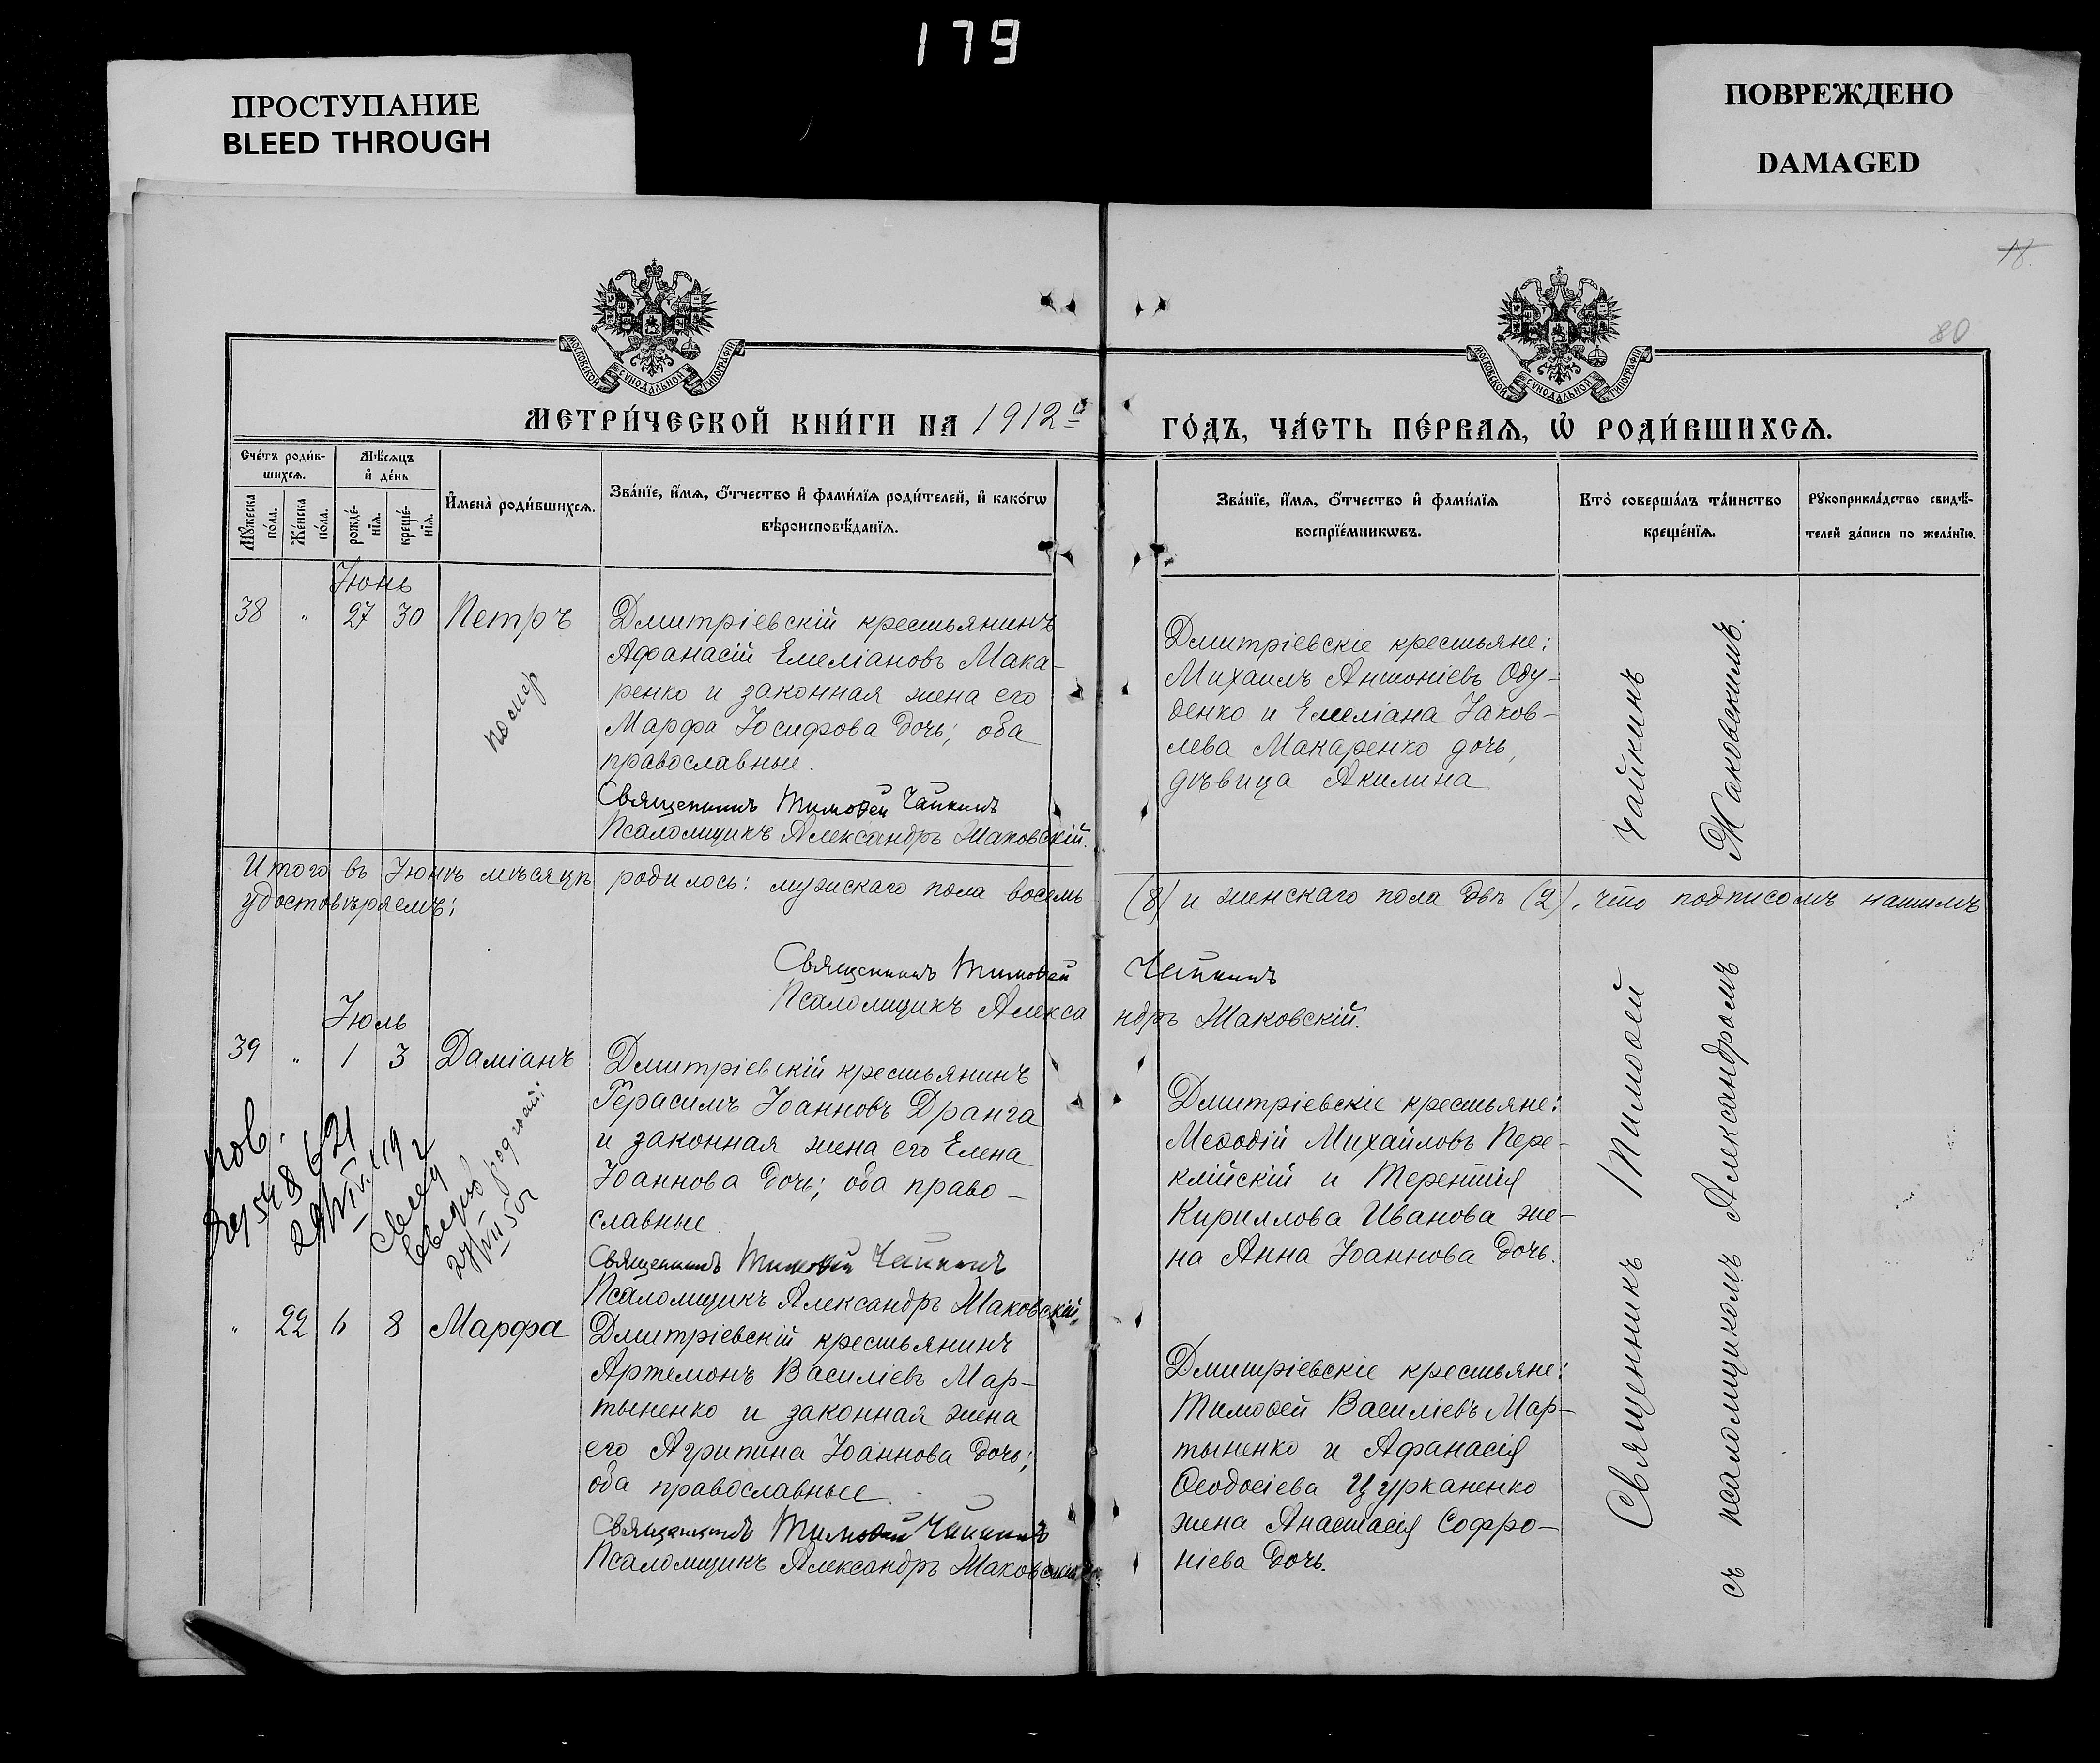 179
ПРОСТУПАНИЕ
BLEED THROUGH
ПОВРЕЖДЕНО
DAMAGED
18.
80
МОСКОВСКОЙ СѴНОДАЛЬНОЙ ТИПОГРАФІИ
МОСКОВСКОЙ СѴНОДАЛЬНОЙ ТИПОГРАФІИ
МЕТРИ́ЧЕСКОЙ КНИ́ГИ НА 1912й ГО́ДЪ, ЧА́СТЬ ПЕ́РВАѦ, Ѡ҆ РОДИ́ВШИХСѦ.
Сче́тъ роди́в-
шихсѧ.
Мѣ́сѧцъ
и҆ де́нь
Мꙋ́жеска
по́ла.
Же́нска
по́ла.
рожде́-
нїѧ.
креще́-
нїѧ.
И҆мена̀ роди́вшихсѧ.
Зва́нїе, и҆́мѧ, ѻ҆́тчество и҆ фами́лїѧ роди́телей, и҆ како́гѡ
вѣроисповѣ́данїѧ.
Зва́нїе, и҆́мѧ, ѻ҆́тчество и҆ фами́лїѧ
воспрїе́мникѡвъ.
Кто̀ соверша́лъ та́инство
креще́нїѧ.
Рꙋкоприкла́дство свидѣ́-
телей за́писи по жела́нїю.
Іюнь
38 " 27 30 Петръ
помер
Дмитріевскій крестьянинъ
Афанасій Емеліановъ Мака-
ренко и законная жена его
Марфа Іосифова дочь; оба
православные.
Священникъ Тимоѳей Чайкинъ
Псаломщикъ Александръ Маковскій.
Дмитріевскіе крестьяне:
Михаилъ Антоніевъ Оду-
денко и Емеліана Іаков-
лева Макаренко дочь,
дѣвица Акилина
Итого въ Іюнѣ мѣсяцѣ родилось: мужскаго пола восемь (8) и женскаго пола двѣ (2), что подписомъ нашимъ
удостовѣряемъ:
Священникъ Тимоѳей Чайкинъ
Псаломщикъ Александръ Маковскій.
Іюль
39 " 1 3 Даміанъ
пов.
Дмитріевскій крестьянинъ
Герасимъ Іоанновъ Дранга
и законная жена его Елена
Іоаннова дочь; оба право-
славные.
Священникъ Тимоѳей Чайкинъ
Псаломщикъ Александръ Маковскій.
Дмитріевскіе крестьяне:
Меѳодій Михайловъ Пере-
клійскій и Терентія
Кириллова Иванова же-
на Анна Іоаннова дочь.
" 22 6 8 Марфа
Дмитріевскій крестьянинъ
Артемонъ Василіевъ Мар-
тыненко и законная жена
его Агрипина Іоаннова дочь;
оба православные.
Священникъ Тимоѳей Чайкинъ
Псаломщикъ Александръ Маковскій.
Дмитріевскіе крестьяне:
Тимоѳей Василіевъ Мар-
тыненко и Афанасія
Ѳеодосіева Цурканенко
жена Анастасія Софро-
ніева дочь.
Священникъ Тимоѳей Чайкинъ
съ псаломщикомъ Александромъ Маковскимъ.